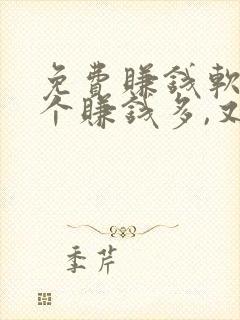 免費賺錢軟
个賺錢多,又
季芹